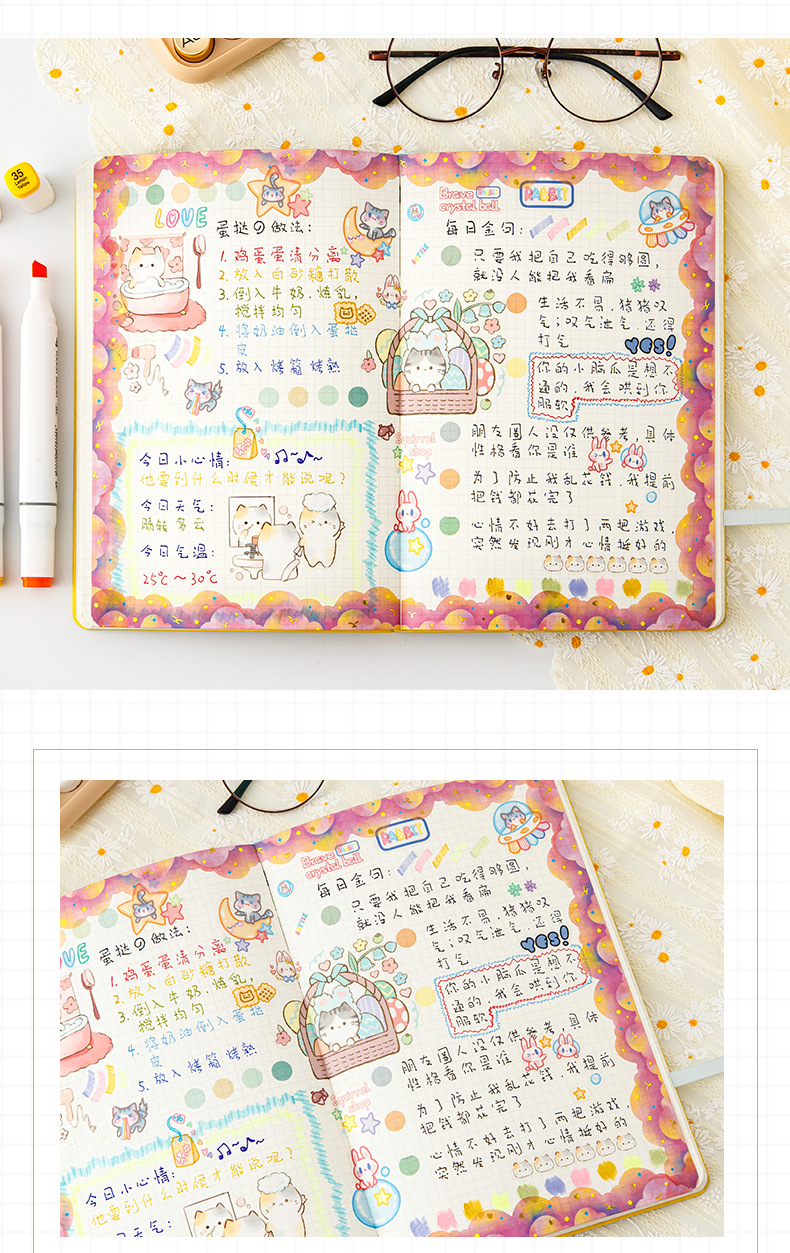 35
Lemon
Yellow
LOVE
蛋挞の做法:
1. 鸡蛋蛋清分离
2. 放入白砂糖打散
3. 倒入牛奶.炼乳,
搅拌均匀
4. 将奶油倒入蛋挞
皮
5. 放入烤箱烤熟
今日小心情:
他要到什么时候才能说呢?
今日天气:
晴转多云
今日气温:
25℃~30℃
Brave
crystal ball
RABBIT
每日金句:
只要我把自己吃得够圆,
就没人能把我看扁
生活不易,猪猪叹
气;叹气泄气,还得
打气
YES!
你的小脑瓜是想不
通的,我会哄到你
服软
朋友圈人设仅供参考,具体
性格看你是谁
为了防止我乱花钱,我提前
把钱都花完了
心情不好去打了两把游戏,
突然发现刚才心情挺好的
Squirrel
shop
RABBIT
Brave
crystal ball
每日金句:
只要我把自己吃得够圆,
就没人能把我看扁
生活不易,猪猪叹
气;叹气泄气,还得
打气
YES!
你的小脑瓜是想不
通的,我会哄到你
服软
朋友圈人设仅供参考,具体
性格看你是谁
为了防止我乱花钱,我提前
把钱都花完了
心情不好去打了两把游戏,
突然发现刚才心情挺好的
Squirrel
shop
OVE
蛋挞の做法:
1. 鸡蛋蛋清分离
2. 放入白砂糖打散
3. 倒入牛奶.炼乳,
搅拌均匀
4. 将奶油倒入蛋挞
皮
5. 放入烤箱烤熟
今日小心情:
他要到什么时候才能说呢?
天气: